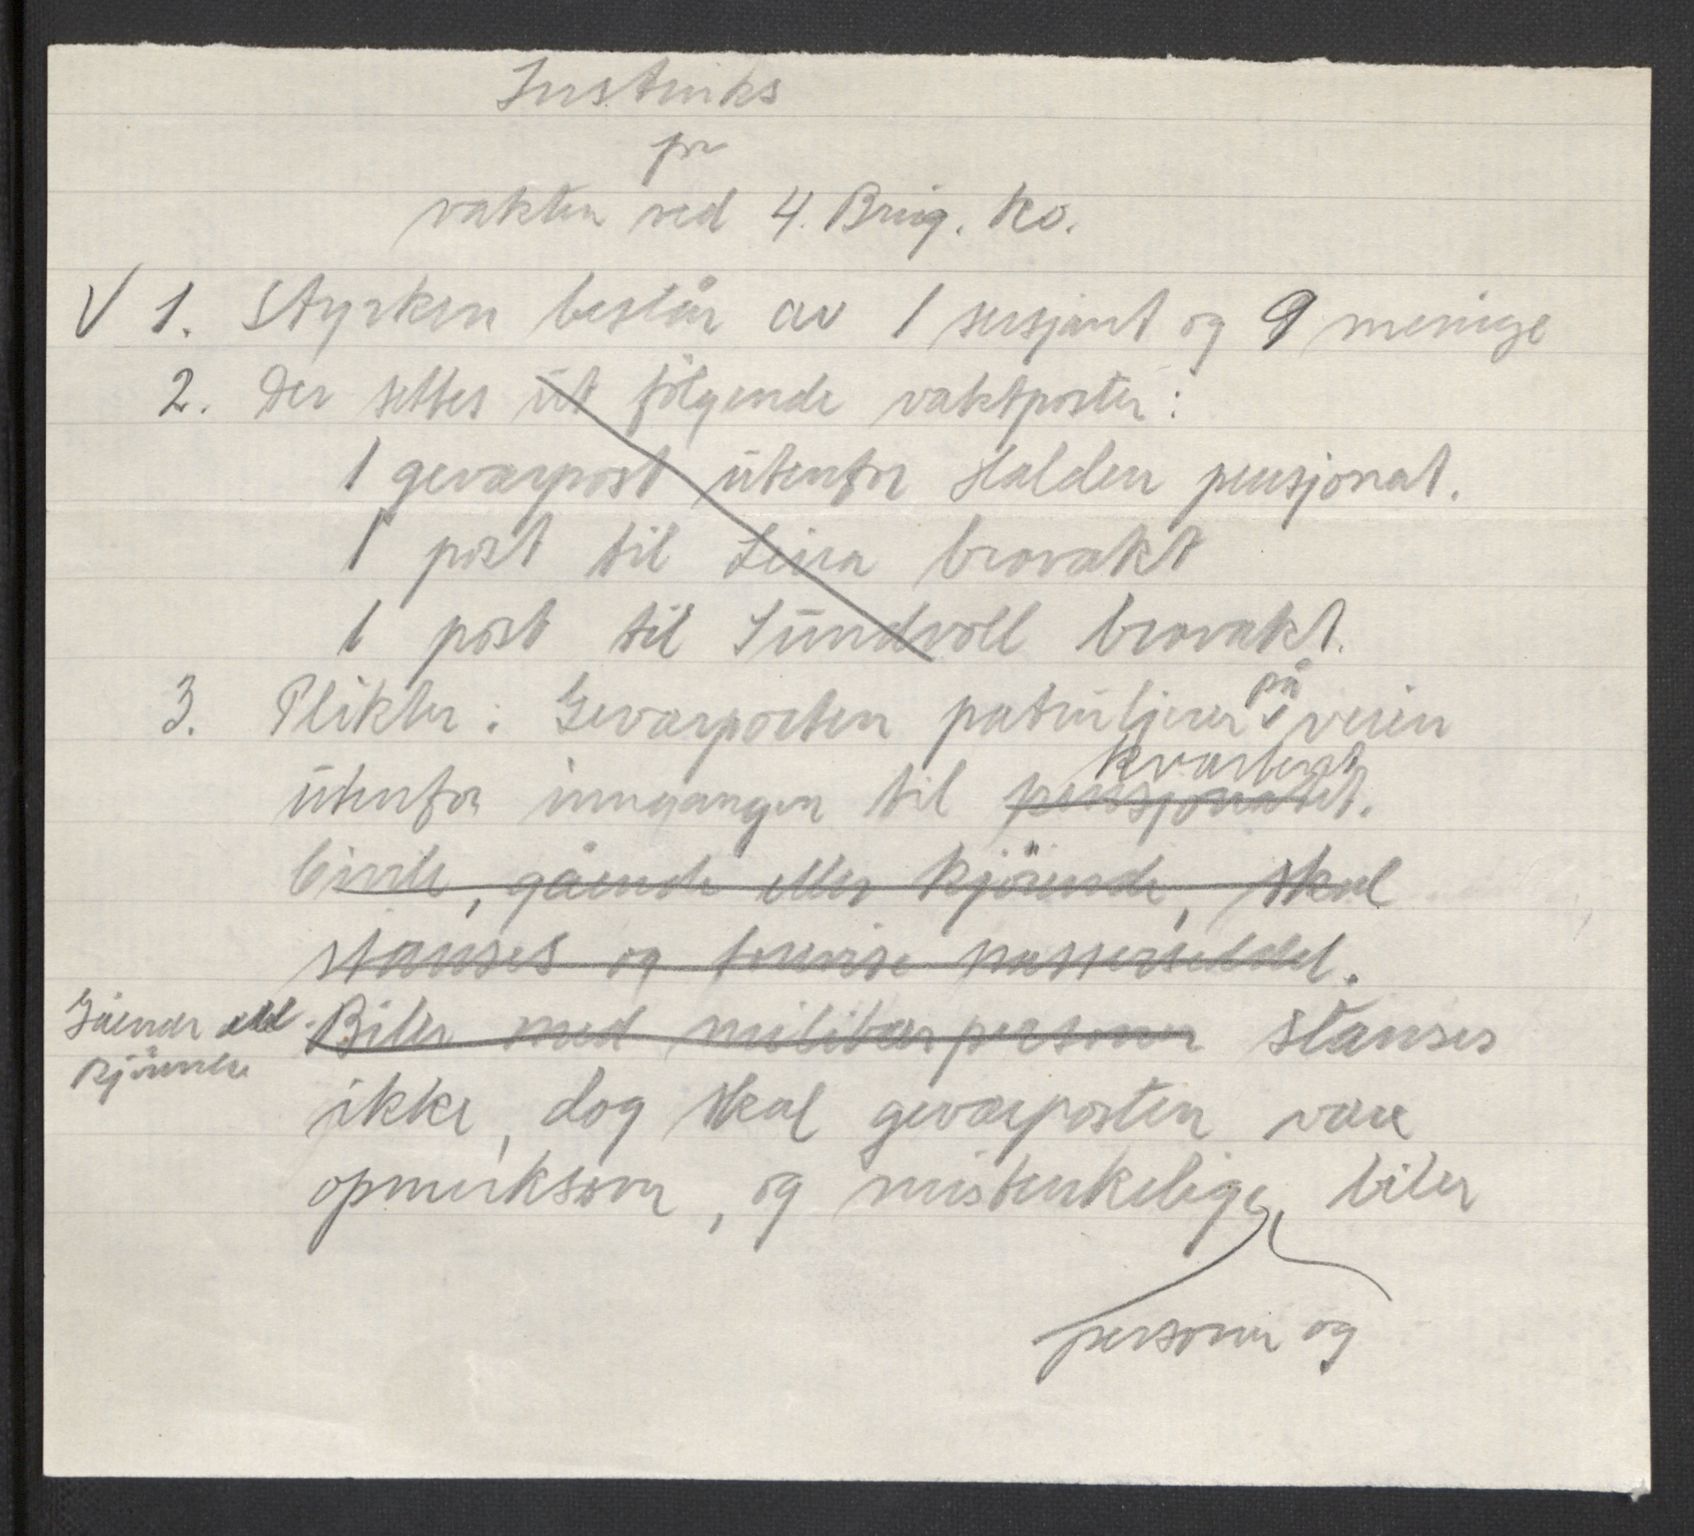 Instruks
for
vakten ved 4. Brig. Ko.
V 1. Styrken består av 1 sersjant og 9 menige
2. Der settes ut følgende vaktposter:
1 geværpost utenfor Halden pensjonat.
1 post til Leira brovakt
1 post til Sundvoll brovakt.
3. Plikter: Geværposten patruljerer på veien
utenfor inngangen til pensjonatet. kvarteret
Civile, gående eller kjörende, skal
stanses og forevise passerseddel.
Gående ell kjörende
Biler med militærpersoner stanses
ikke, dog skal geværposten være
opmerksom, og mistenkelige biler
personer og